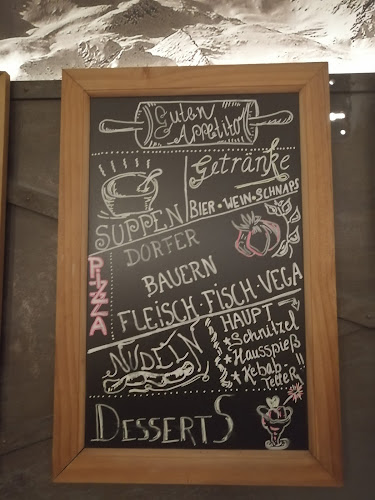 Guten
Appetito
Getränke
BIER • WEIN • SCHNAPS
SUPPEN
PIZZA
DORFER
BAUERN
FLEISCH-FISCH-VEGA
NUDELN
HAUPT
*Schnitzel
*Hausspieß
*Kebab
Teller!!
DESSERTS